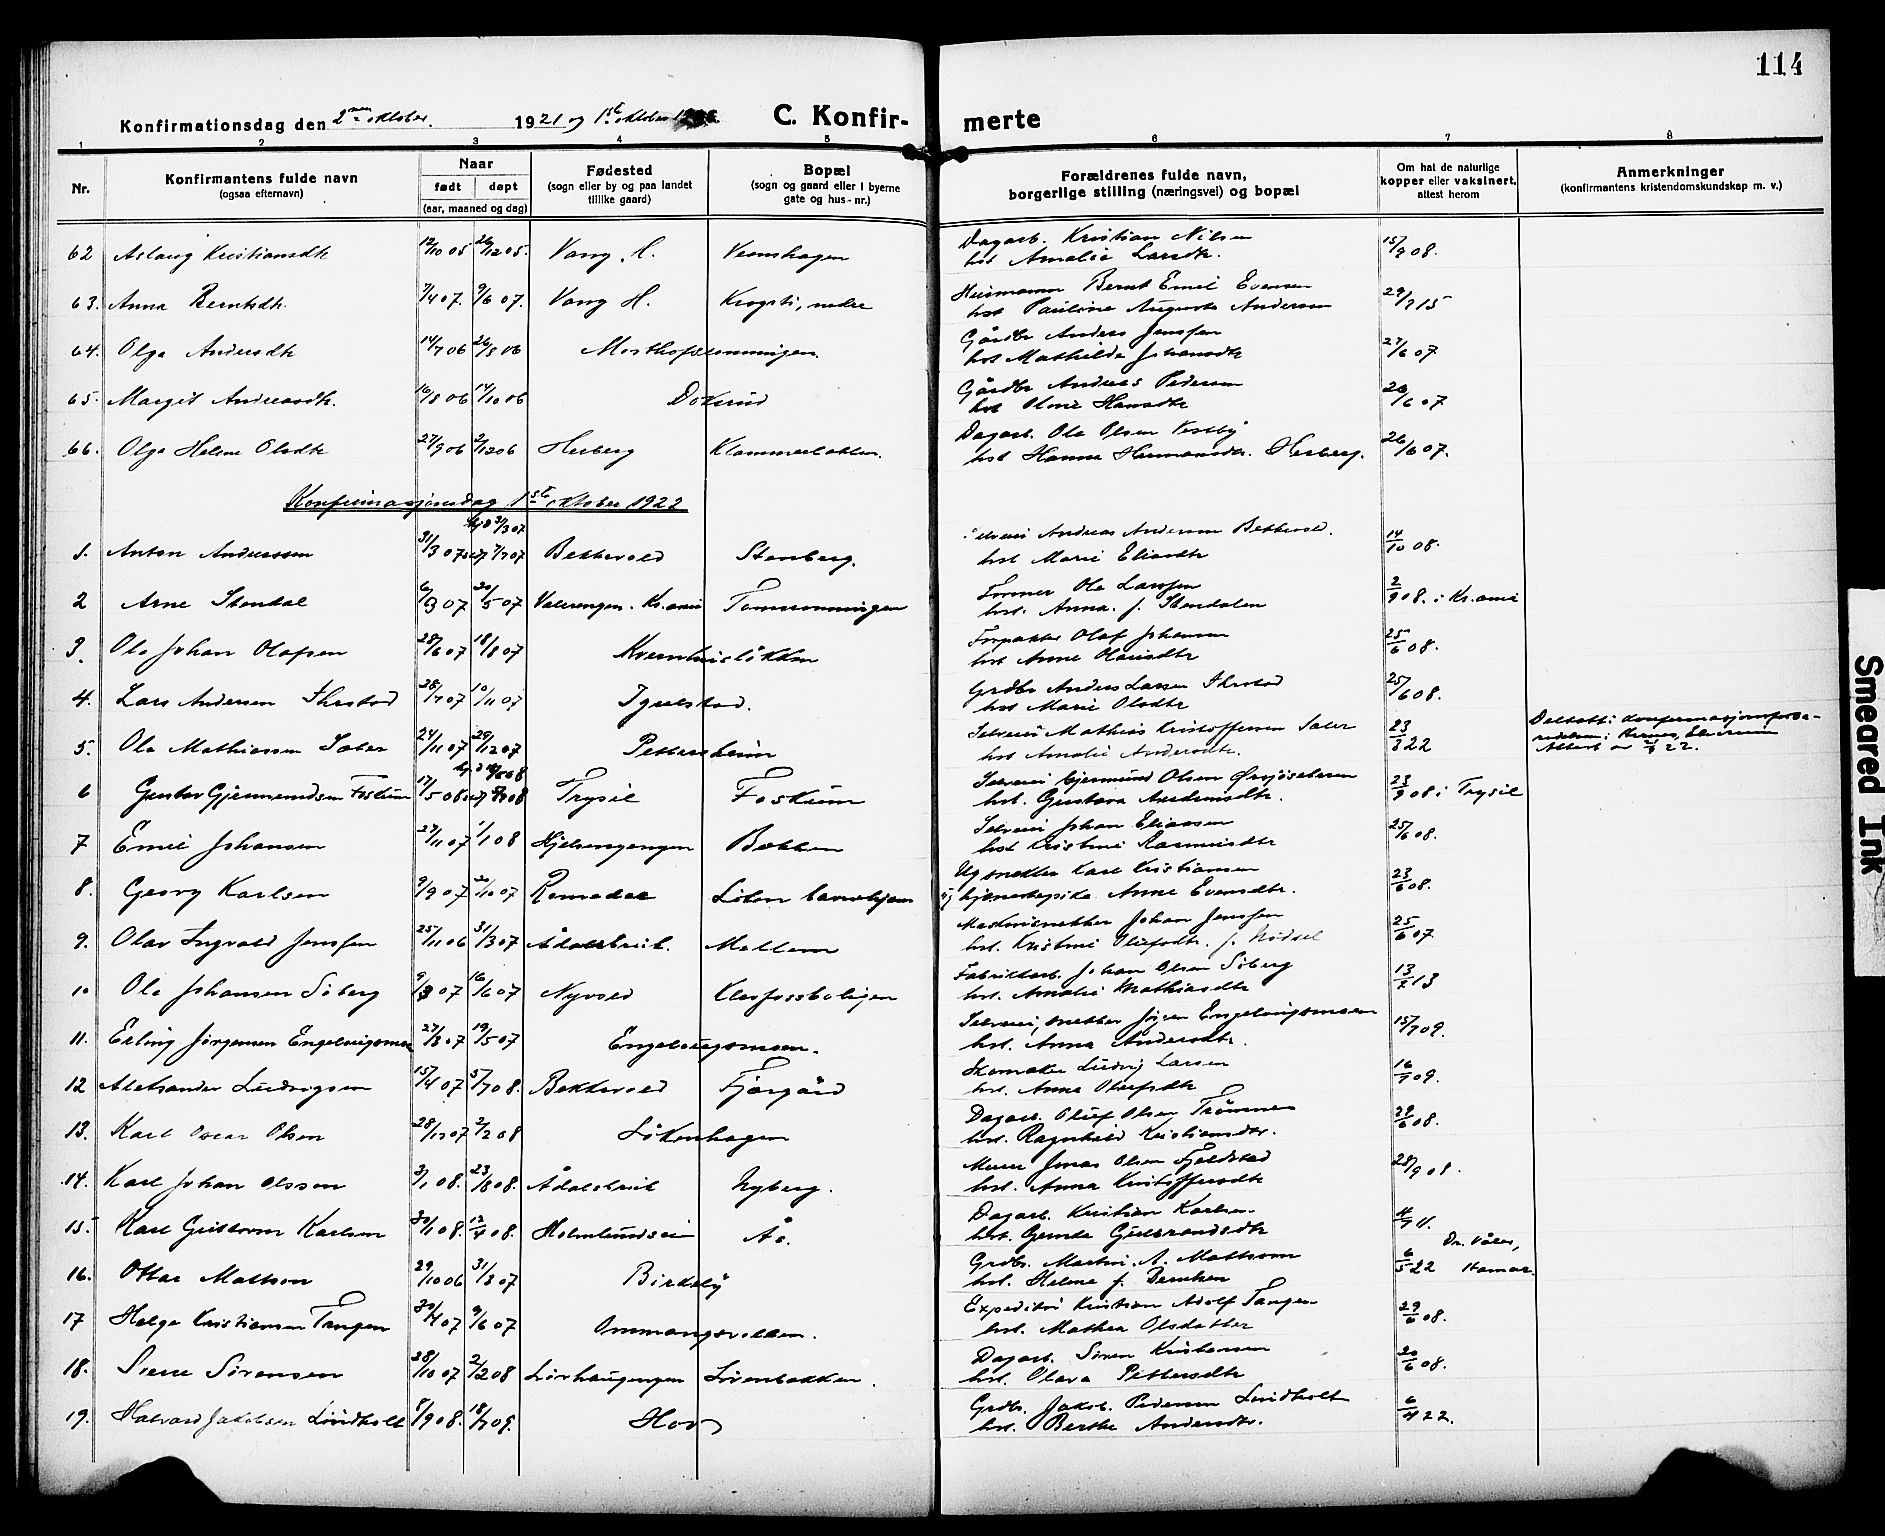 114
Konfirmationsdag den 2nen oktober. 1921 og 1ste oktober C. Konfirmerte
1 2 3 4 5 6 7 8
Nr.
Konfirmantens fulde navn
(ogsaa efternavn)
Naar
født døpt
(aar, maaned og dag)
Fødested
(sogn eller by og paa landet
tillike gaard)
Bopæl
(sogn og gaard eller i byerne
gate og hus-nr.)
Forældrenes fulde navn,
borgerlige stilling (næringsvei) og bopæl
Om hat de naturlige
kopper eller vaksinert,
attest herom
Anmerkninger
(konfirmantens kristendomskundskap m. v.)
62 Aslaug Kristiansdtr 12/10 05 26/12 05. Vang H. Veenshagen Dagarb. Kristian Nilsen 15/9 08.
hst Amalie Larsdtr.
63. Anna Berntsdtr. 7/4 07. 9/6 07. Vang H. Krogsti, nedre Husmann Bernt Emil Evensen 29/7 15
hst Pauline Augusta Andersen
64. Olga Andersdtr 14/7 06 26/8 06 Gårdbr Anders Jenssen 27/6 07
hst Mathilde Johansdtr
65. Margit Andreasdtr. 16/8 06 14/10 06 Dokrud Gårdbr Andreas Pedersen 26/6 07
hst Oline Hansdtr
66. Olga Helene Olsdtr 27/9 06 2/12 06 Herberg Klommerbakken. Dagarb. Ole Olsen Vestby 26/6 07.
hst Hanna Hermansdtr. Herberg.
Konfirmasjonsdag 1ste oktober 1922
1. Anton Andreassen 31/3 07 Bekkevold Stenberg. Selveier Andreas Andersen Bekkevold. 14/10 08.
hst Marie Eliasdtr
2 Arne Stendal 6/3 07 20/5 07 Valerengen. Kr.ania Tomsronningen Former Ole Larssen 2/9 08. i Kr.ania
hst. Anna. f. Stendalen
3. Ole Johan Olafsen 28/6 07 18/8 07 Kvernhusløkken Forpakter Olaf Johansen 25/6 08.
hst Anne Olausdtr
4. Lars Andersen Ihrstad 28/7 07 10/11 07 Igvelstad. Grdbr Anders Larsen Ihrstad 25/6 08.
hst Marie Olsdtr
5. Ole Mathiassen Sater 24/11 07 29/12 07 Pettersheim Selveier Mathias Kristoffersen Sater 23/3 22 Deltatt i konfirmasjonsforbe-
redelsen i
Attest av 22.
hst Amalie Andersdtr.
6 Gustav Gjermundsen Foskum 17/5 08 Trysil Foskum Selveier Gjermund Olsen Ørsjøseteren 23/9 08 i Trysil
hst. Gustava Andersdtr.
7 Emil Johansen 27/11 07 1/1 08 Hjelsengengen Bakken Selveier Johan Eliassen 25/6 08.
hst Kristine Rasmusdtr
8. Georg Karlsen 9/9 07 20/10 07 Romedal Løten barnehjem Ug snekker Karl Kristiansen 23/6 08.
Anne Evensdtr.
9. Olav Ingvald Jenssen 25/11 06 31/3 07 Ådalsbruk. Mellem Maskinsnekker Johan Jenssen 25/6 07
hst. Kristine Olufsdtr. f. Nødsel
10 Ole Johansen Söberg 9/3 07 16/6 07 Nyvold Klevfossboligen Fabrikkarb. Johan Olsen Söberg 13/7 13
hst. Amalie Mathiasdtr
11. Erling Jörgensen Engelaugsmoen 27/3 07 19/5 07 Engelaugsmoen. Selveier, snekker Jörgen Engelaugsmoen 15/7 09.
hst. Anna Andersdtr.
12 Aleksander Ludvigsen 15/4 07 5/7 08. Bekkevold Fjørgård Skomaker Ludvig Larsen 16/7 09.
hst. Anna Olufsdtr
13. Karl Oscar Olsen 28/12 07 2/2 08 Løkenhagen Dagarb. Oluf Olsen Trømnes 22/6 08.
hst. Ragnhild Kristiansdtr.
14. Karl Johan Olssen 3/1 08. 23/8 08. Ådalsbruk Nyberg. Murer Jonas Olsen Fjeldstad 28/9 08.
hst. Anna Kristoffersdtr
15 Karl Gustavm Karlsen 30/1 08. 12/4 08. Holmlundsei Ås. Dagarb. Kristian Karlsen 4/9 11.
hst. Gunda Gulbrandsdtr
16. Ottar Matson 29/10 06 31/3 07 Birkeby Grdbr. Martin A. Mattson 6/5 22 Dr. Våler, Hamar.
hst. Helene f. Berntsen
17 Helge Kristiansen Tangen 30/4 07 9/6 07 Ommangsvollen. Expeditör Kristian Adolf Tangen 29/6 08.
hst. Mathea Olsdatter
18. Sverre Sörensen 28/10 07 2/2 08 Lörhaugengen Lövenbakken. Dagarb. Sören Kristensen 20/6 08.
hst. Olava Pettersdtr
19. Halvard Jakobsen Lundholt 8/9 08. 18/7 09. Hov Grdbr. Jakob Pedersen Lundholt 6/4 22.
hst. Berthe Andersdtr.
Smeared Ink